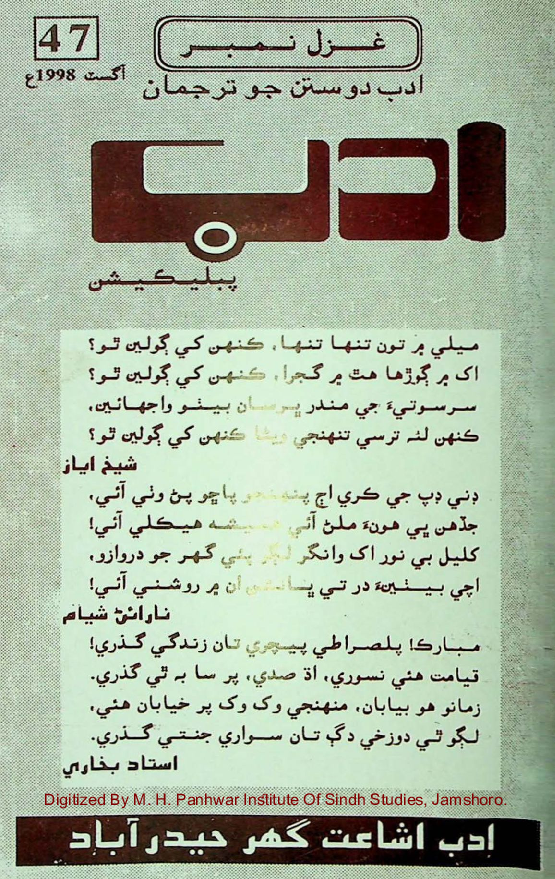 47
غزل نمبر
آگست 1998ع
ادب دوستن جو ترجمان
ادب
پبليڪيشن
ميلي ۾ تون تنها تنها، ڪنهن کي ڳولين ٿو؟
اک ۾ ڳوڙها هٿ ۾ گجرا، ڪنهن کي ڳولين ٿو؟
سرسوتيءَ جي مندر پرسان بيٺو واجهائين،
ڪنهن لئه ترسي تنهنجي ويڻا ڪنهن کي ڳولين ٿو؟
شيخ اياز
ڊني ڊپ جي ڪري اڄ پنهنجو پاڇو پڻ وٺي آئي،
جڏهن پي هوءَ ملڻ آئي هميشه هيڪلي آئي!
کليل بي نور اک وانگر لڳو پئي گهر جو دروازو،
اچي بيٺينءَ در تي ان ۾ روشني آئي!
نارائڻ شيام
مبارڪ! پلصراطي پيچري تان زندگي گذري!
قيامت هئي نسوري، اڌ صدي، پر سا به ٿي گذري.
زمانو هو بيابان، منهنجي وک وک پر خيابان هئي،
لڳو ٿي دوزخي دڳ تان سواري جنتي گذري.
استاد بخاري
Digitized By M. H. Panhwar Institute Of Sindh Studies, Jamshoro.
ادب اشاعت گهر حيدرآباد